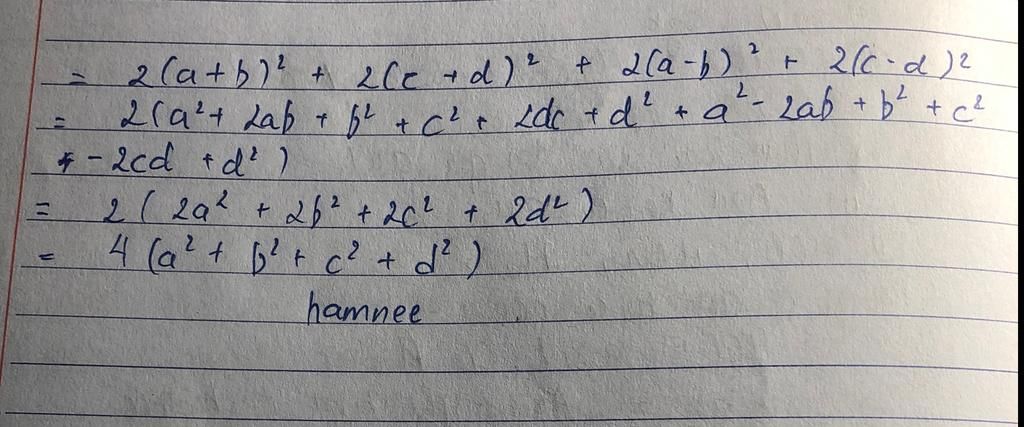 = 2(a+b)² + 2(c+d)² + 2(a-b)² + 2(c-d)2
= 2(a²+ 2ab + b² + c² + 2dc + d² + a² - 2ab + b² + c²
- 2cd + d²)
= 2(2a² + 2b² + 2c² + 2d²)
= 4(a² + b² + c² + d²)
hamnee